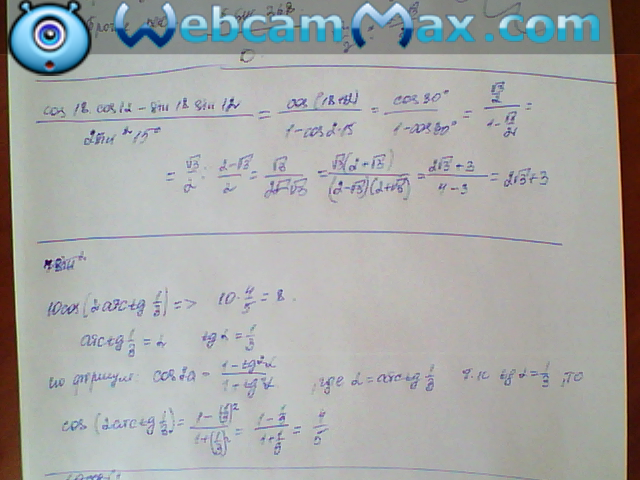 WebcamMax.com
cos 18 · cos 12 − sin 18 sin 12 / 2 sin² 15° = cos (18+12) / 1 − cos 2·15 = cos 30° / 1 − cos 30° = √3/2 / 1 − √3/2 =
= √3/2 : 2−√3/2 = √3/2−√3 = √3(2+√3)/(2−√3)(2+√3) = 2√3+3/4−3 = 2√3+3
10cos(2arctg 1/3) => 10·4/5 = 8.
arctg 1/3 = α tg α = 1/3
по формул: cos 2α = 1−tg²α/1+tg²α , где α = arctg 1/3 т.к tg α = 1/3, то
cos(2arctg 1/3) = 1−(1/3)²/1+(1/3)² = 1−1/9/1+1/9 = 4/5